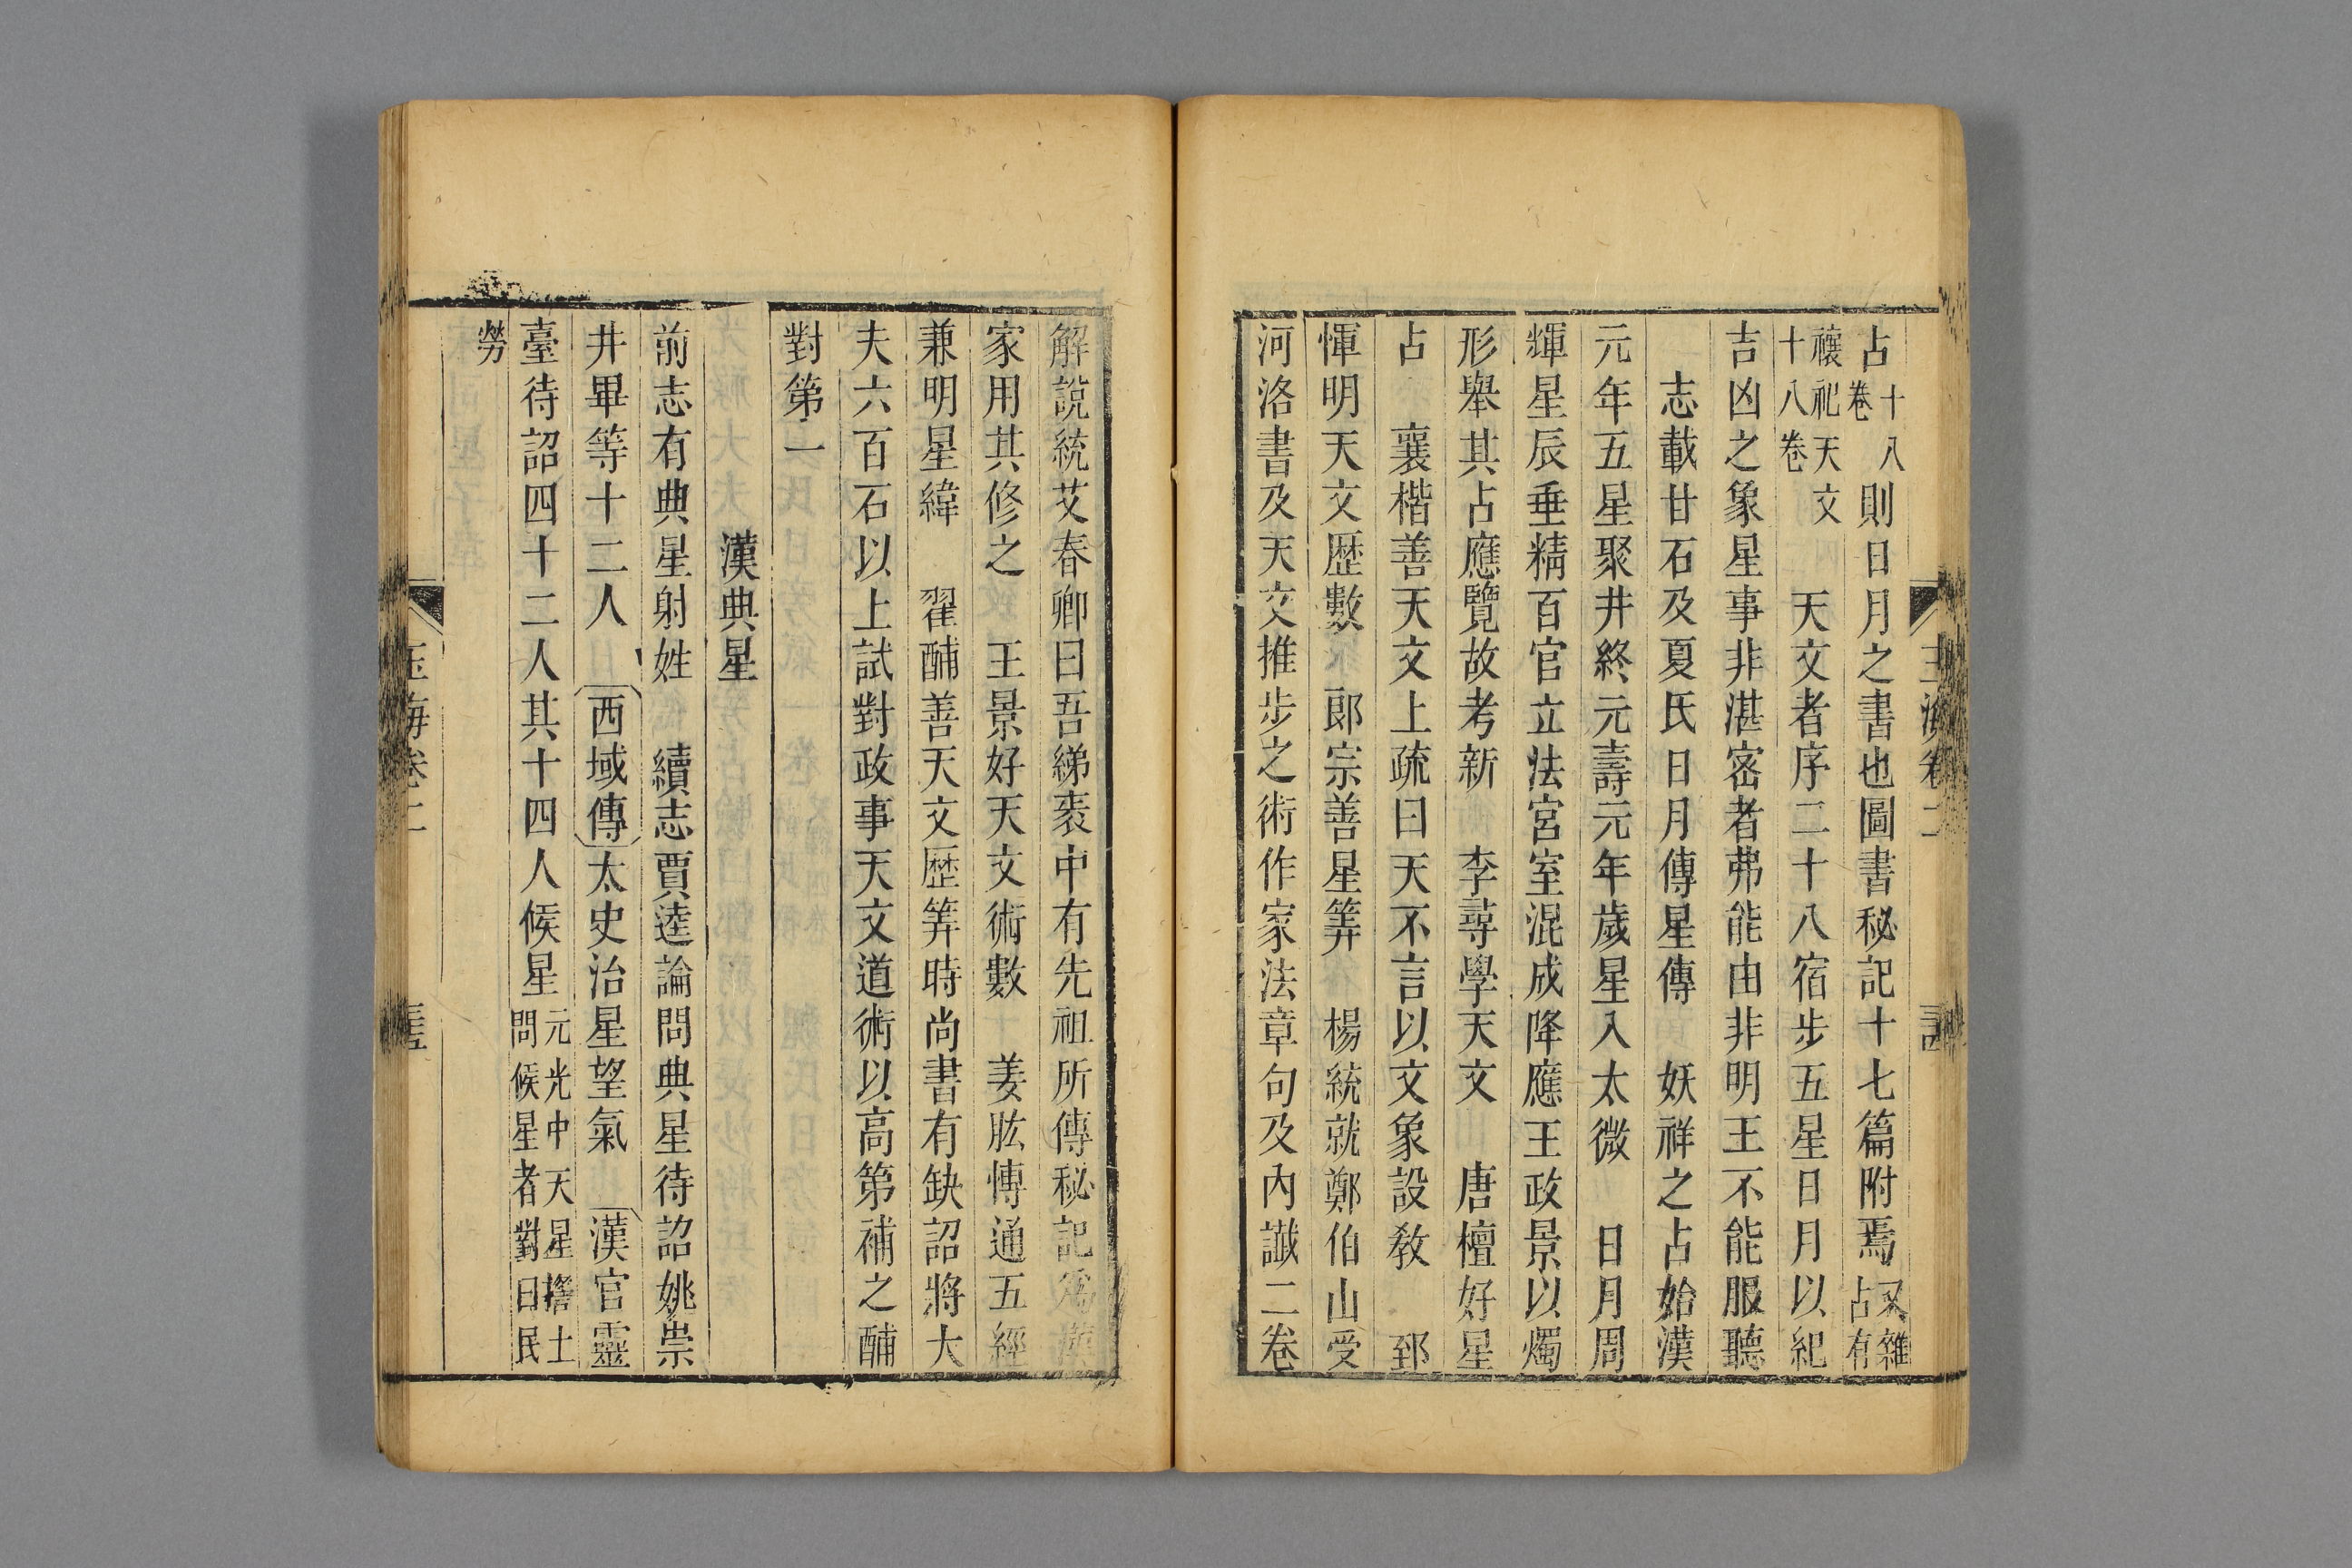 占十八卷則日月之書也圖書秘記十七篇附焉又雜占有
禳祀天文十八卷 天文者序二十八宿步五星日月以紀
吉凶之象星事非湛密者弗能由非明王不能服聽
志載甘石及夏氏日月傳星傳 妖祥之占始漢
元年五星聚井終元壽元年歲星入太微 日月周
輝星辰垂精百官立法宮室混成降應王政景以燭
形舉其占應覽故考新 李尋學天文 唐檀好星
占 襄楷善天文上疏曰天不言以文象設教 郅
惲明天文歷數 郎宗善星筭 楊統就鄭伯山受
河洛書及天文推步之術作家法章句及內讖二卷
解說統艾春卿曰吾綈袠中有先祖所傳秘記爲漢
家用其修之 王景好天文術數 姜肱慱通五經
兼明星緯 翟酺善天文歷筭時尚書有缺詔將大
夫六百石以上試對政事天文道術以高第補之酺
對第一
漢典星
前志有典星射姓 續志賈逵論問典星待詔姚崇
井畢等十二人 西域傳太史治星望氣 漢官靈
臺待詔四十二人其十四人候星元光中天星搖上問候星者對曰民
勞
玉海卷二